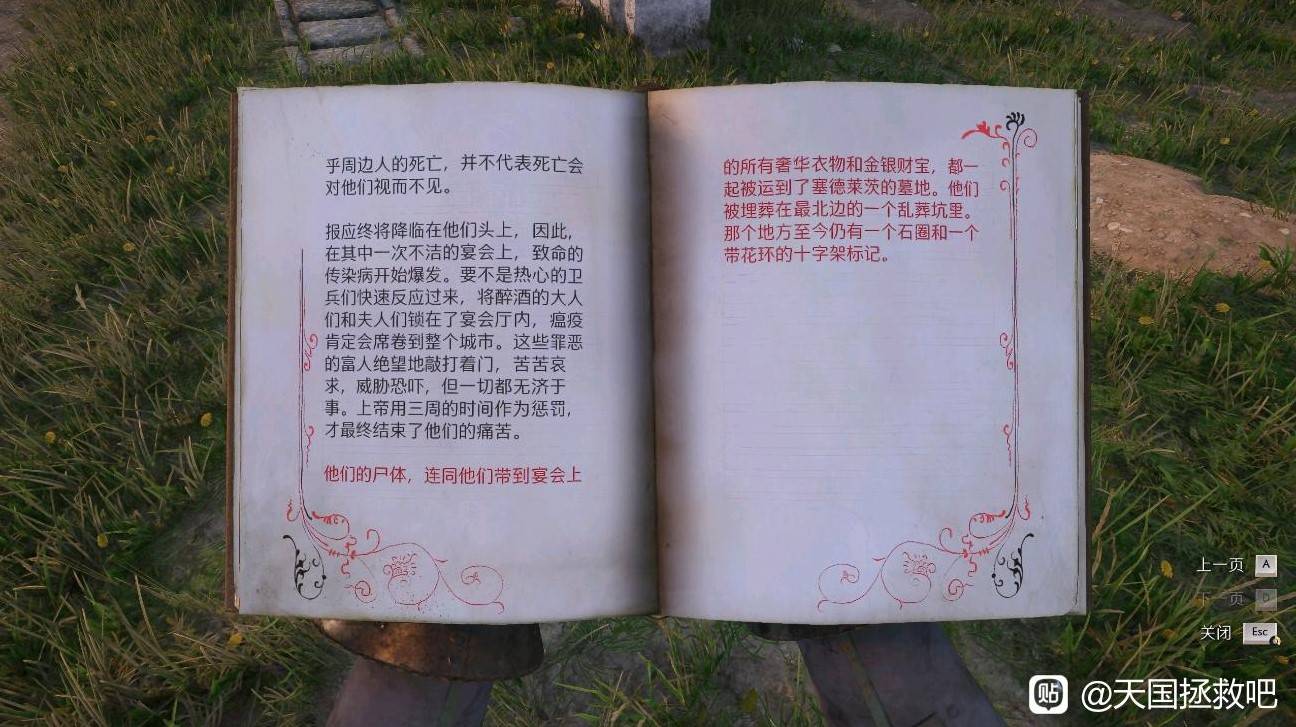 乎周边人的死亡，并不代表死亡会
对他们视而不见。
报应终将降临在他们头上，因此，
在其中一次不洁的宴会上，致命的
传染病开始爆发。要不是热心的卫
兵们快速反应过来，将醉酒的大人
们和夫人们锁在了宴会厅内，瘟疫
肯定会席卷到整个城市。这些罪恶
的富人绝望地敲打着门，苦苦哀
求，威胁恐吓，但一切都无济于
事。上帝用三周的时间作为惩罚，
才最终结束了他们的痛苦。
他们的尸体，连同他们带到宴会上
的所有奢华衣物和金银财宝，都一
起被运到了塞德莱茨的墓地。他们
被埋葬在最北边的一个乱葬坑里。
那个地方至今仍有一个石圈和一个
带花环的十字架标记。
上一页 A
下一页 D
关闭 Esc
贴 @天国拯救吧